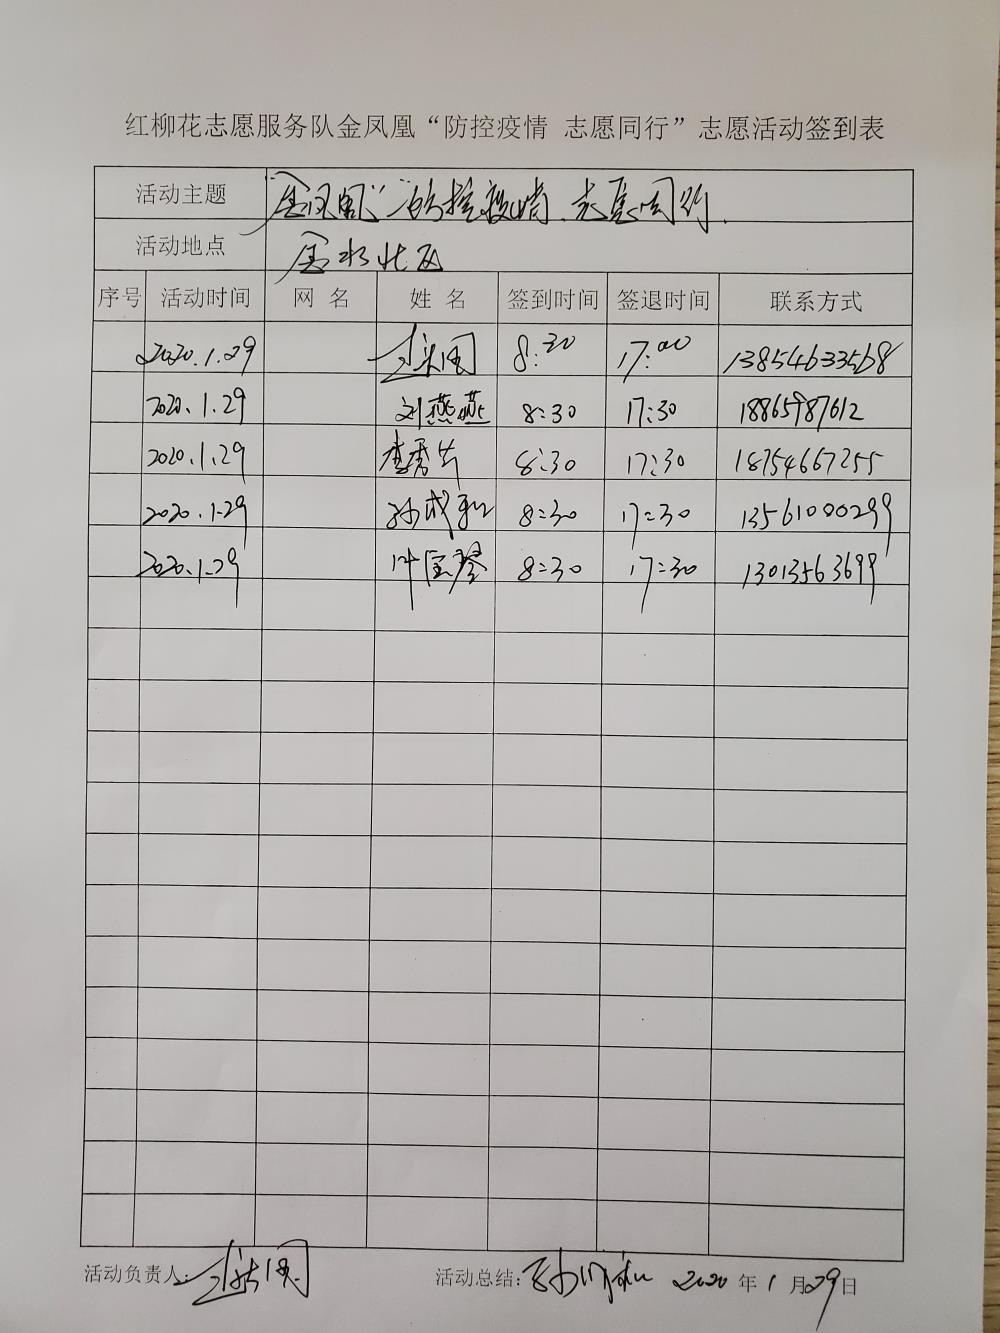 红柳花志愿服务队金凤凰“防控疫情 志愿同行”志愿活动签到表
活动主题 “金凤凰”防控疫情、志愿同行.
活动地点 金水北区
序号 活动时间 网 名 姓 名 签到时间 签退时间 联系方式
2020.1.29 8:30 17:00 13854633568
2020.1.29 刘燕燕 8:30 17:30 18865987612
2020.1.29 李秀芳 8:30 17:30 18754667255
2020.1.29 孙成和 8:30 17:30 13561000299
2020.1.29 叶宝琴 8:30 17:30 13013563699
活动负责人: 活动总结: 2020 年 1 月 29 日